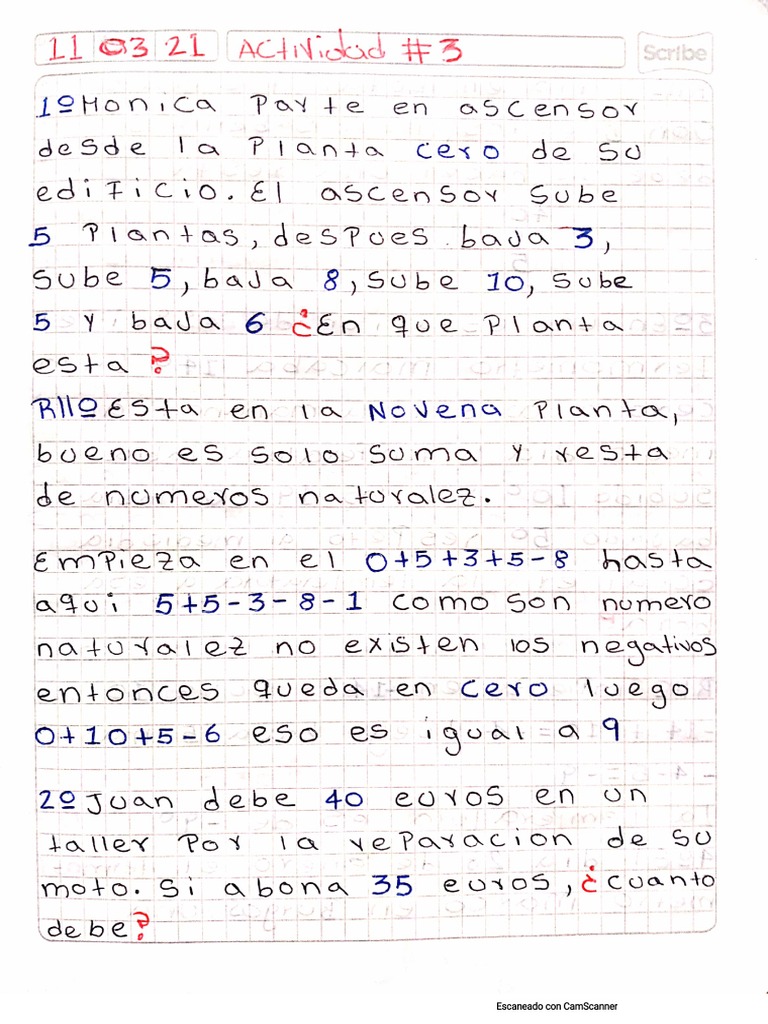 11 03 21 Actividad #3
Scribe
1º Monica Parte en ascensor
desde la Planta cero de su
edificio. El ascensor sube
5 Plantas, despues baja 3,
sube 5, baja 8, sube 10, sube
5 y baja 6 ¿En que Planta
esta?
R//º Esta en la Novena Planta,
bueno es solo suma y resta
de numeros naturalez.
Empieza en el 0+5+3+5-8 hasta
aqui 5+5-3-8-1 como son numero
naturalez no existen los negativos
entonces queda en cero luego
0+10+5-6 eso es igual a 9
2º Juan debe 40 euros en un
taller Por la reparacion de su
moto. Si abona 35 euros, ¿cuanto
debe?
Escaneado con CamScanner